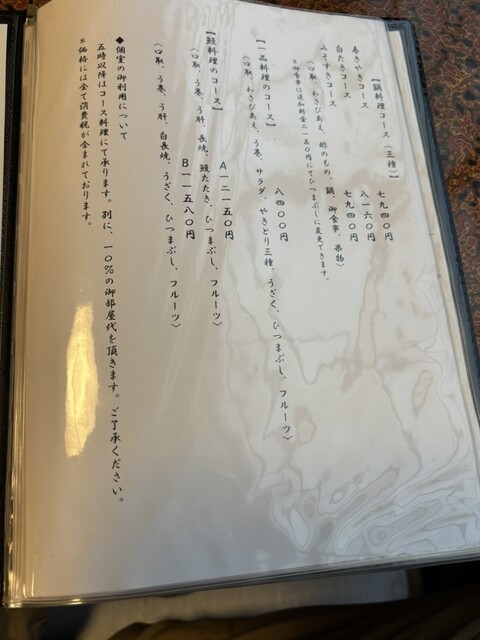 【鍋料理コース(三種)】
寿きやきコース 七九四〇円
白たきコース 八一六〇円
みそすきコース 七九四〇円
(口取、わさびあえ、酢のもの、鍋、御食事、果物)
※御食事は追加料金二一五〇円にてひつまぶしに変更できます。
【一品料理のコース】 八四〇〇円
(口取、わさびあえ、う巻、サラダ、やきとり三種、うざく、ひつまぶし、フルーツ)
【鰻料理のコース】 A 一二一五〇円
(口取、う巻、う肝、長焼、鰻たたき、ひつまぶし、フルーツ)
B 一一五八〇円
(口取、う巻、う肝、白長焼、うざく、ひつまぶし、フルーツ)
◆個室の御利用について
五時以降はコース料理にて承ります。別に、一〇%の御部屋代を頂きます。ご了承ください。
※価格には全て消費税が含まれております。